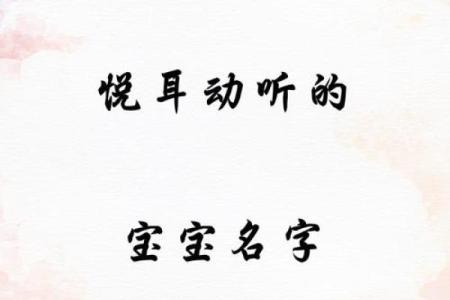 悦耳动听的
宝宝名字